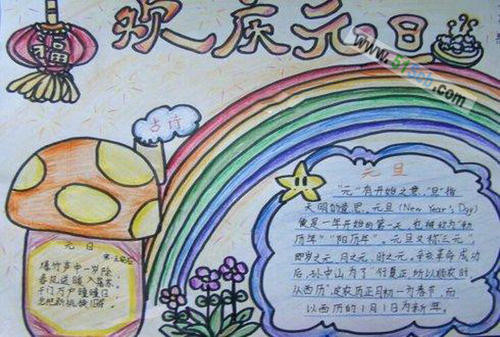 欢庆元旦
福
古诗
元日
宋·王安石
爆竹声中一岁除
春风送暖入屠苏
千门万户曈曈日
总把新桃换旧符
元旦
"元"有开始之意,"旦"指
天明的意思。元旦(New Year's Day)
便是一年开始的第一天,也被称为"新
历年""阳历年"。元旦又称"三元",
即岁之元、月之元、时之元。辛亥革命成功
后,孙中山为了"行夏正,所以顺农时
从西历",定农历正月初一为春节,而
以西历的1月1日为新年。